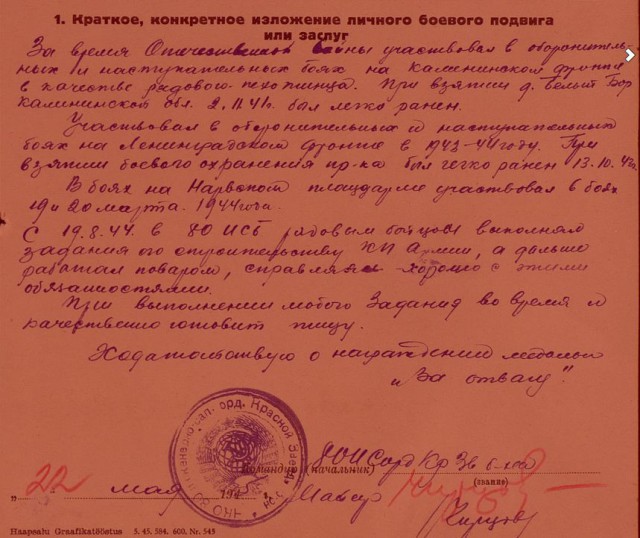 1. Краткое, конкретное изложение личного боевого подвига
или заслуг
За время Отечественной войны участвовал в оборонитель-
ных и наступательных боях на Калининском фронте
в качестве рядового пехотинца. При взятии д. Белый Бор
Калининской обл. 2.11.41г. был легко ранен.
Участвовал в оборонительных и наступательных
боях на Ленинградском фронте в 1943-44 году. При
взятии боевого охранения пр-ка был легко ранен 13.10.43г.
В боях на Нарвском плацдарме участвовал в боях
19 и 20 марта 1944 года.
С 19.8.44. в 80 ИСБ рядовым бойцом выполнял
задания по строительству КП Армии, а дальше
работал поваром, справлялся хорошо с этими
обязанностями.
При выполнении любого задания во время и
качественно готовит пищу.
Ходатайствую о награждении медалью
"За отвагу".
Командир (начальник) 80 ИС орд. Кр Зв б-на
(звание)
"22" мая 1945 Майор
Haapsalu Graafikatööstus 5. 45. 584. 600. Nr. 545